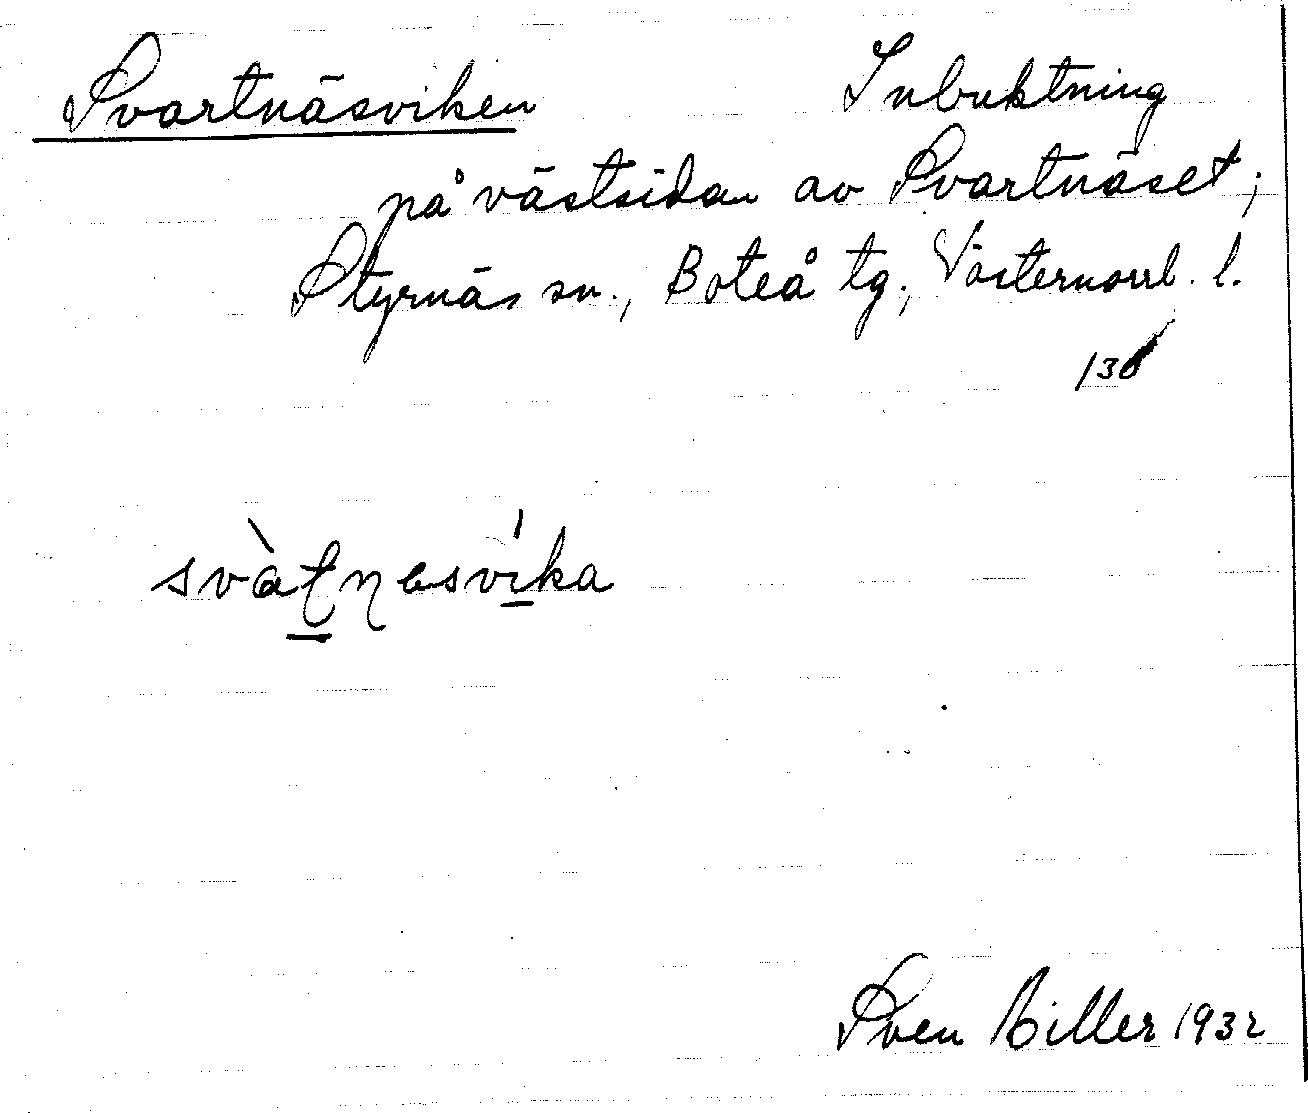 Svartnäsviken Inbuktning
på västsidan av Svartnäset;
Styrnäs sn., Boteå tg., Västernorrl. l.
svàʈɳesvíka
Sven Hiller 1932